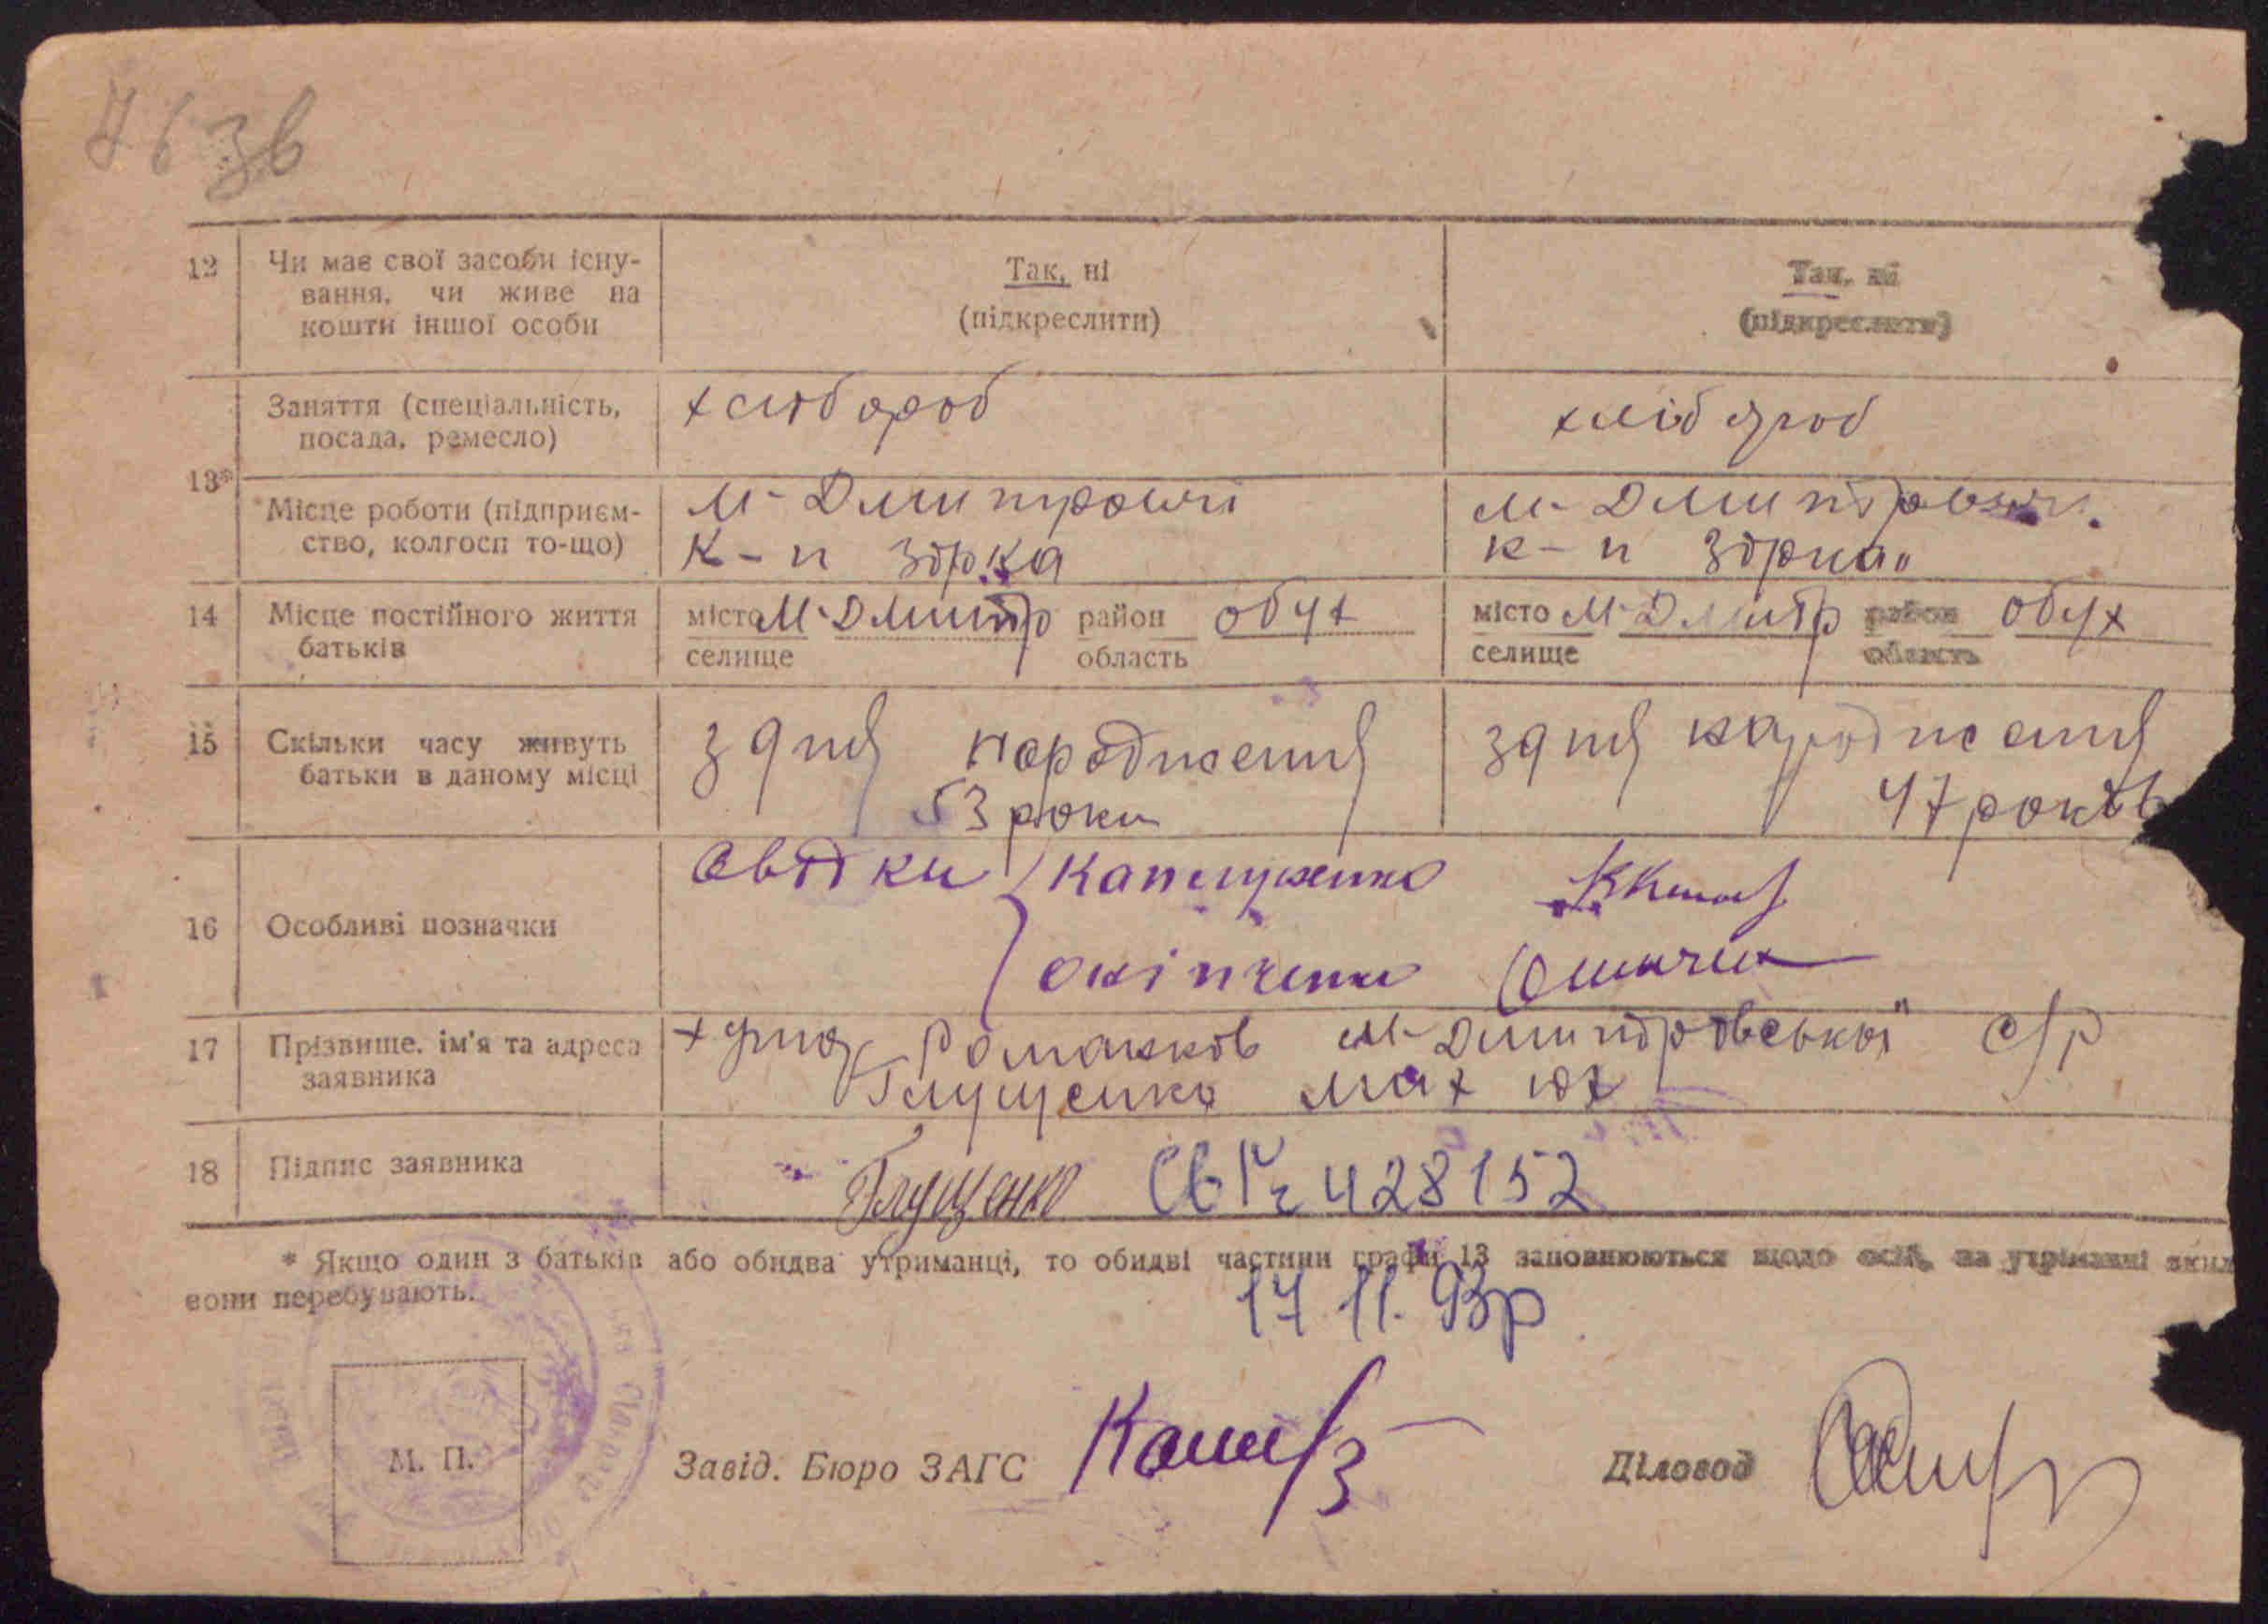 76 зв
12 Чи має свої засоби існу-
вання, чи живе на
кошти іншої особи
Так, ні
(підкреслити)
Так, ні
(підкреслити)
13*
Заняття (спеціальність,
посада, ремесло)
хлібороб
хлібороб
Місце роботи (підприєм-
ство, колгосп то-що)
М-Дмитровичі
к-п Зірка
М-Дмитрович.
к-п Зірка
14 Місце постійного життя
батьків
місто М-Дмитр район Обух
селище область
місто М-Дмитр район Обух
селище область
15 Скільки часу живуть
батьки в даному місці
з дня народження
53 роки
з дня народження
47 років
16 Особливі позначки
Свідки
17 Прізвище, ім'я та адреса
заявника
хутор Романків М-Дмитровської с/р
Глущенко
18 Підпис заявника
Глущенко 428152
* Якщо один з батьків або обидва утриманці, то обидві частини графи 13 заповнюються щодо осіб, на утриманні яких
вони перебувають.
17.11.93р
М. П.
Завід. Бюро ЗАГС
Діловод